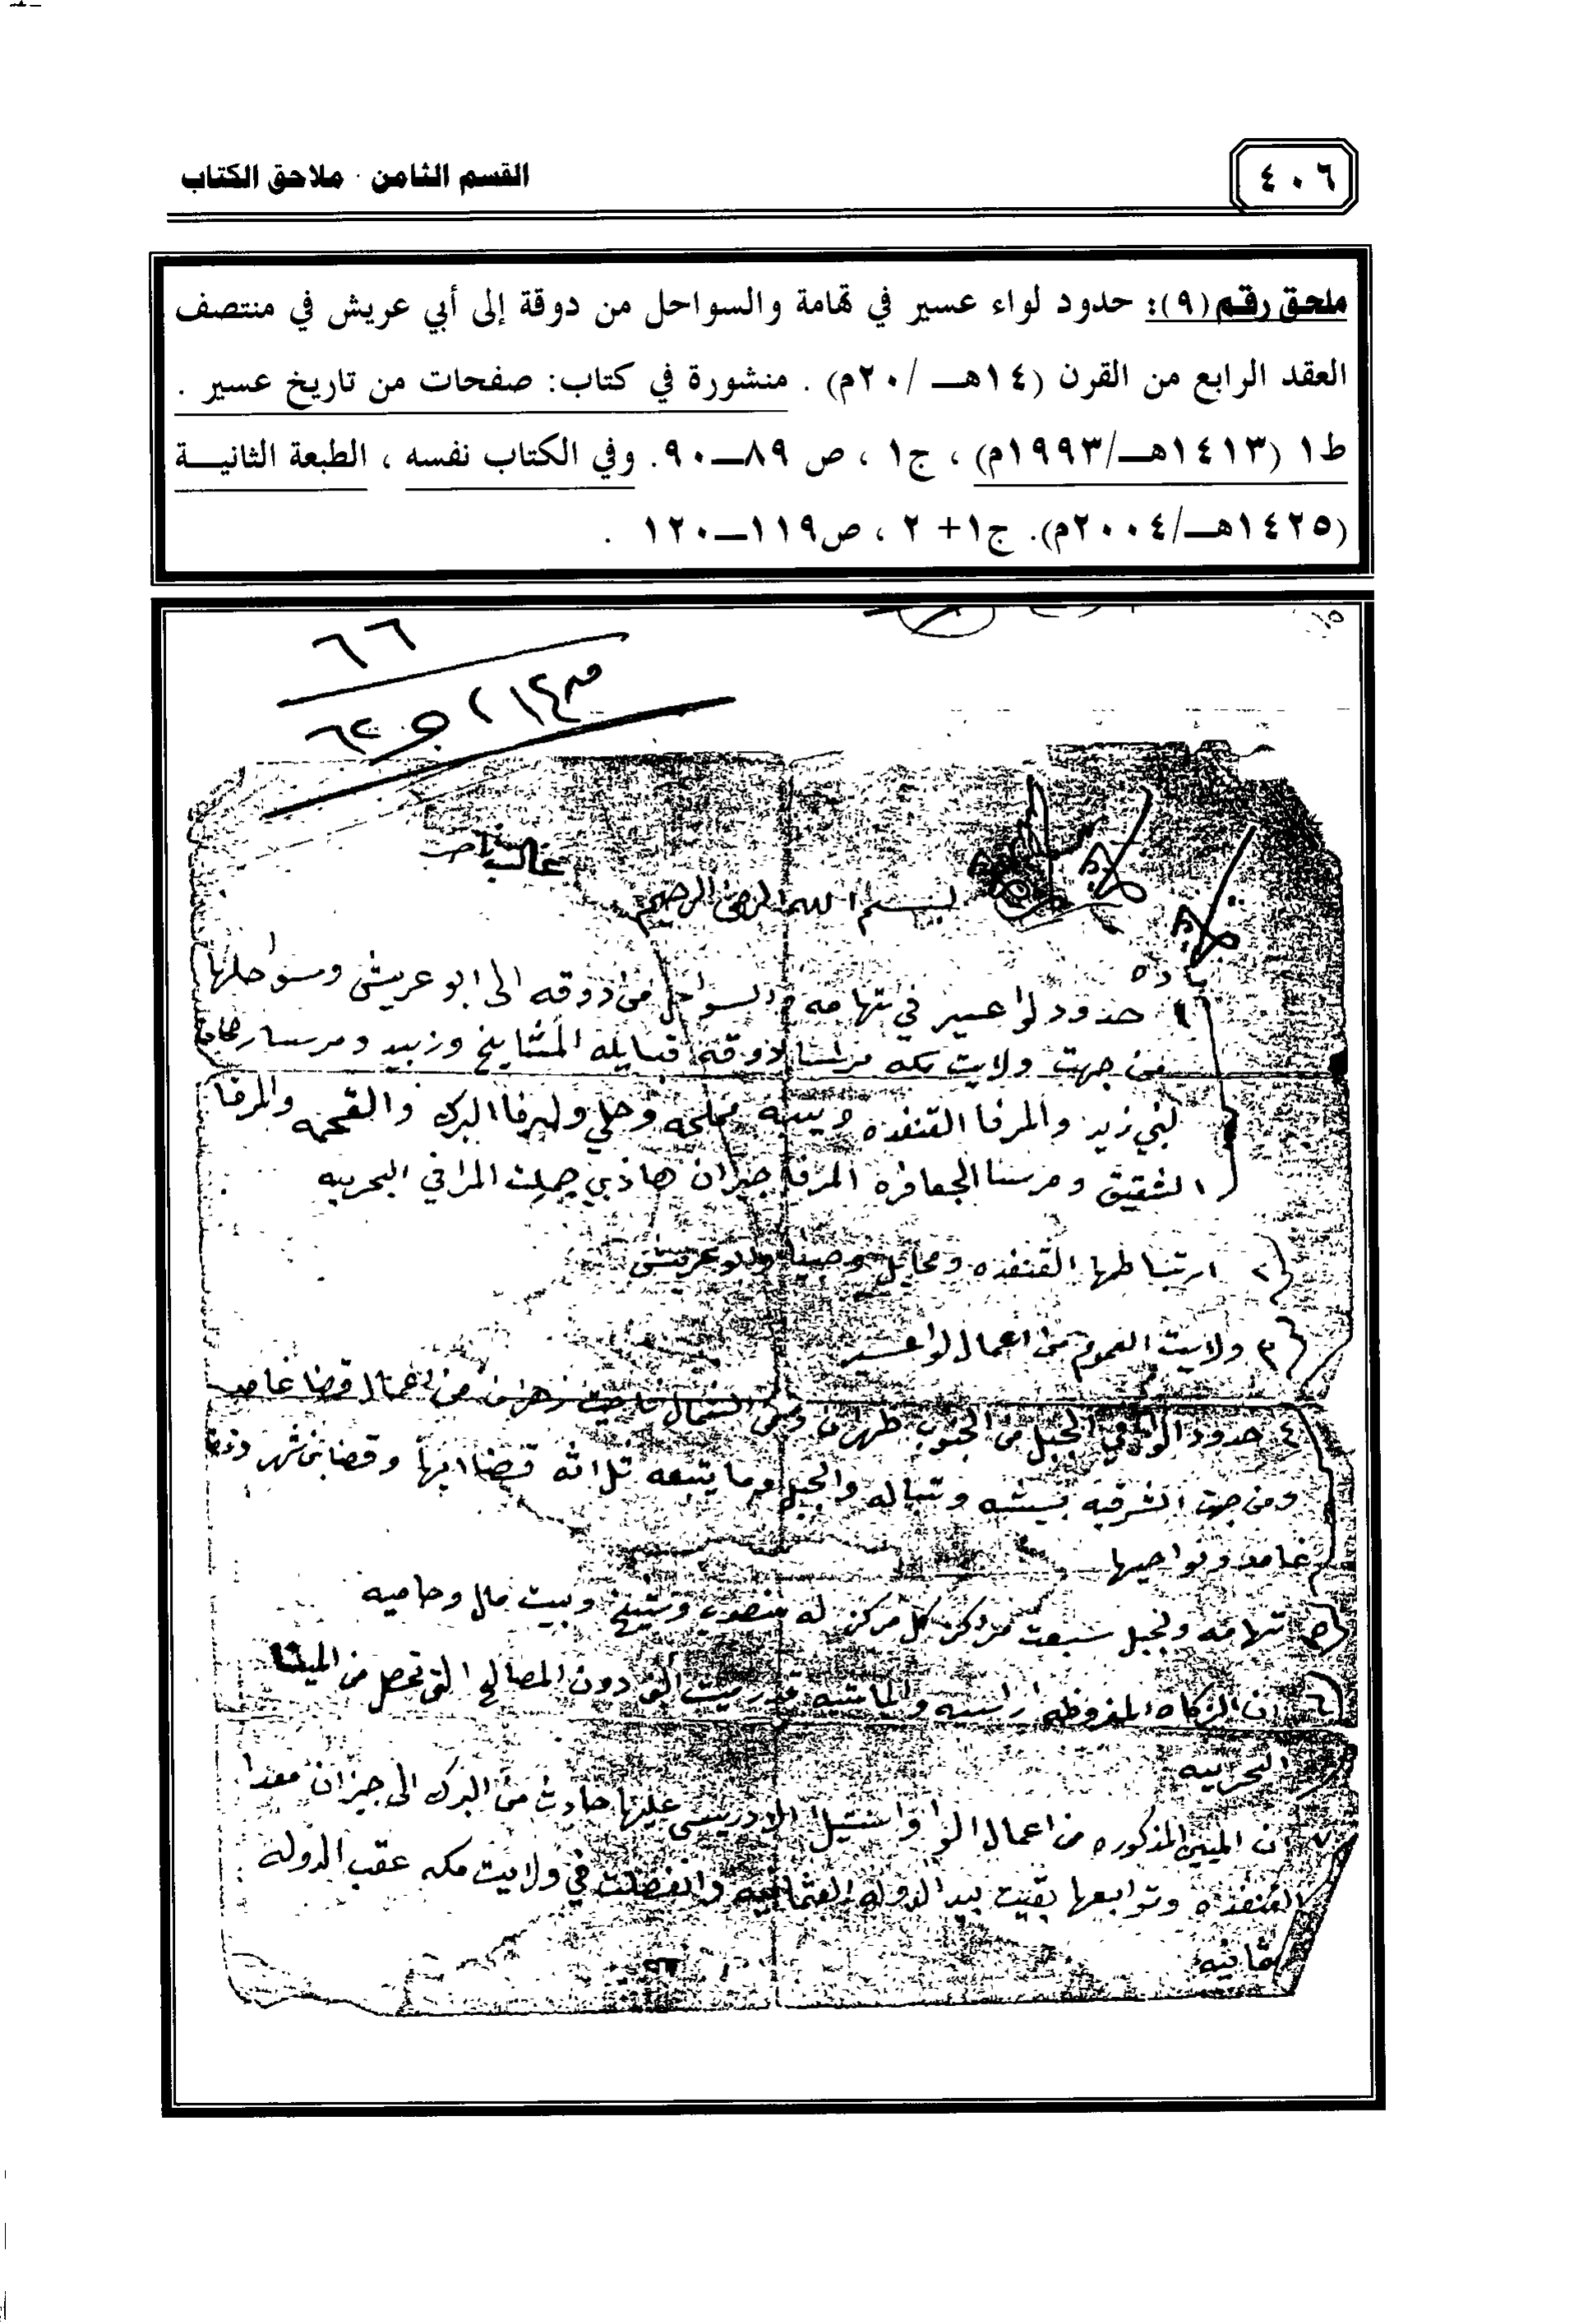 ٤٠٦
القسم الثامن · ملاحق الكتاب
ملحق رقم (٩): حدود لواء عسير في تهامة والسواحل من دوقة إلى أبي عريش في منتصف
العقد الرابع من القرن (١٤هـ /٢٠م) . منشورة في كتاب: صفحات من تاريخ عسير .
ط١ (١٤١٣هـ/١٩٩٣م) ، ج١ ، ص ٨٩ــ٩٠. وفي الكتاب نفسه ، الطبعة الثانية
(١٤٢٥هـ/٢٠٠٤م). ج١+ ٢ ، ص١١٩ــ١٢٠ .
٦٦
بسم الله الرحمن الرحيم
ماده
١ حدود لوا عسير في تهامه والسواحل من دوقه الى ابو عريش وسواحلها
من جهت ولايت مكه مرسا دوقه قبايله المشايخ وزبيد ومرسا
لبني زيد والمرفا القنفذه وحلي والمرفا البرك والقحمه والمرفا
الشقيق ومرسا الجعافره المرفا جيزان هاذي جملت المرافي البحريه
٢ ارتباطها القنفذه ومحايل وصبيا وابو عريش
٣ ولايت العموم من اعمال لوا عسير
٤ حدود الوا في الجبل من الجنوب ظهران ومن الشمال ناحيت زهران من اعمال قضا غامد
ومن جهت الشرقيه بيشه وتباله والجبل وما يتبعه ثلاثه قضا ابها وقضا بني شهر وقضا
غامد ونواحيها
٥ تهامه ولجبل سبعت مراكز كل مركز له منصوب وشيخ وبيت مال وحاميه
٦ ان الزكاه المفروظه والماشيه قدر ميت الف دون المصالح التي تحصل من المينا
البحريه
٧ ان المين المذكوره من اعمال الوا الادريسي عليها حادث من البرك الى جيزان معدا
القنفذه وتوابعها بقيت بيد الدوله العثمانيه وانفصلت في ولايت مكه عقب الدوله